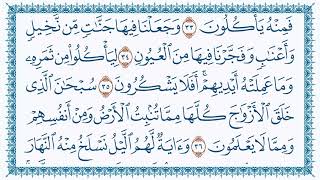 فَمِنْهُ يَأْكُلُونَ ٣٣ وَجَعَلْنَا فِيهَا جَنَّٰتٍ مِّن نَّخِيلٍ
وَأَعْنَٰبٍ وَفَجَّرْنَا فِيهَا مِنَ ٱلْعُيُونِ ٣٤ لِيَأْكُلُوا۟ مِن ثَمَرِهِۦ
وَمَا عَمِلَتْهُ أَيْدِيهِمْ ۖ أَفَلَا يَشْكُرُونَ ٣٥ سُبْحَٰنَ ٱلَّذِى
خَلَقَ ٱلْأَزْوَٰجَ كُلَّهَا مِمَّا تُنۢبِتُ ٱلْأَرْضُ وَمِنْ أَنفُسِهِمْ
وَمِمَّا لَا يَعْلَمُونَ ٣٦ وَءَايَةٌ لَّهُمُ ٱلَّيْلُ نَسْلَخُ مِنْهُ ٱلنَّهَارَ